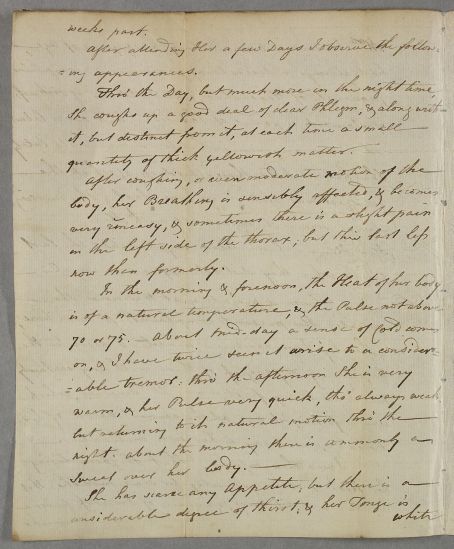 weeks past.
After attending Her a few Days I observe the follow-
=ing appearances.
Thro the Day, but much more in the night time,
She coughs up a good deal of clear Phlegm, & along with
it, but distinct from it, at each time a small
quantity of thick yellowish matter.
After coughing, or even moderate motion of the
body, her Breathing is sensibly affected, & becomes
very uneasy, & sometimes there is a slight pain
in the left side of the thorax; but this last less
now than formerly.
In the morning & forenoon, the Heat of her body
is of a natural temperature, & the Pulse not above
70 or 75. — About mid-day a sense of Cold comes
on, & I have twice seen it arise to a consider-
=able tremor: thro' the afternoon She is very
warm, & her Pulse very quick, tho' always weak
but returning to its natural motion thro the
night. about the morning there is commonly a
Sweat over her body. —
She has scarce any Appetite; but there is a
considerable degree of thirst; & her Tonge is
white